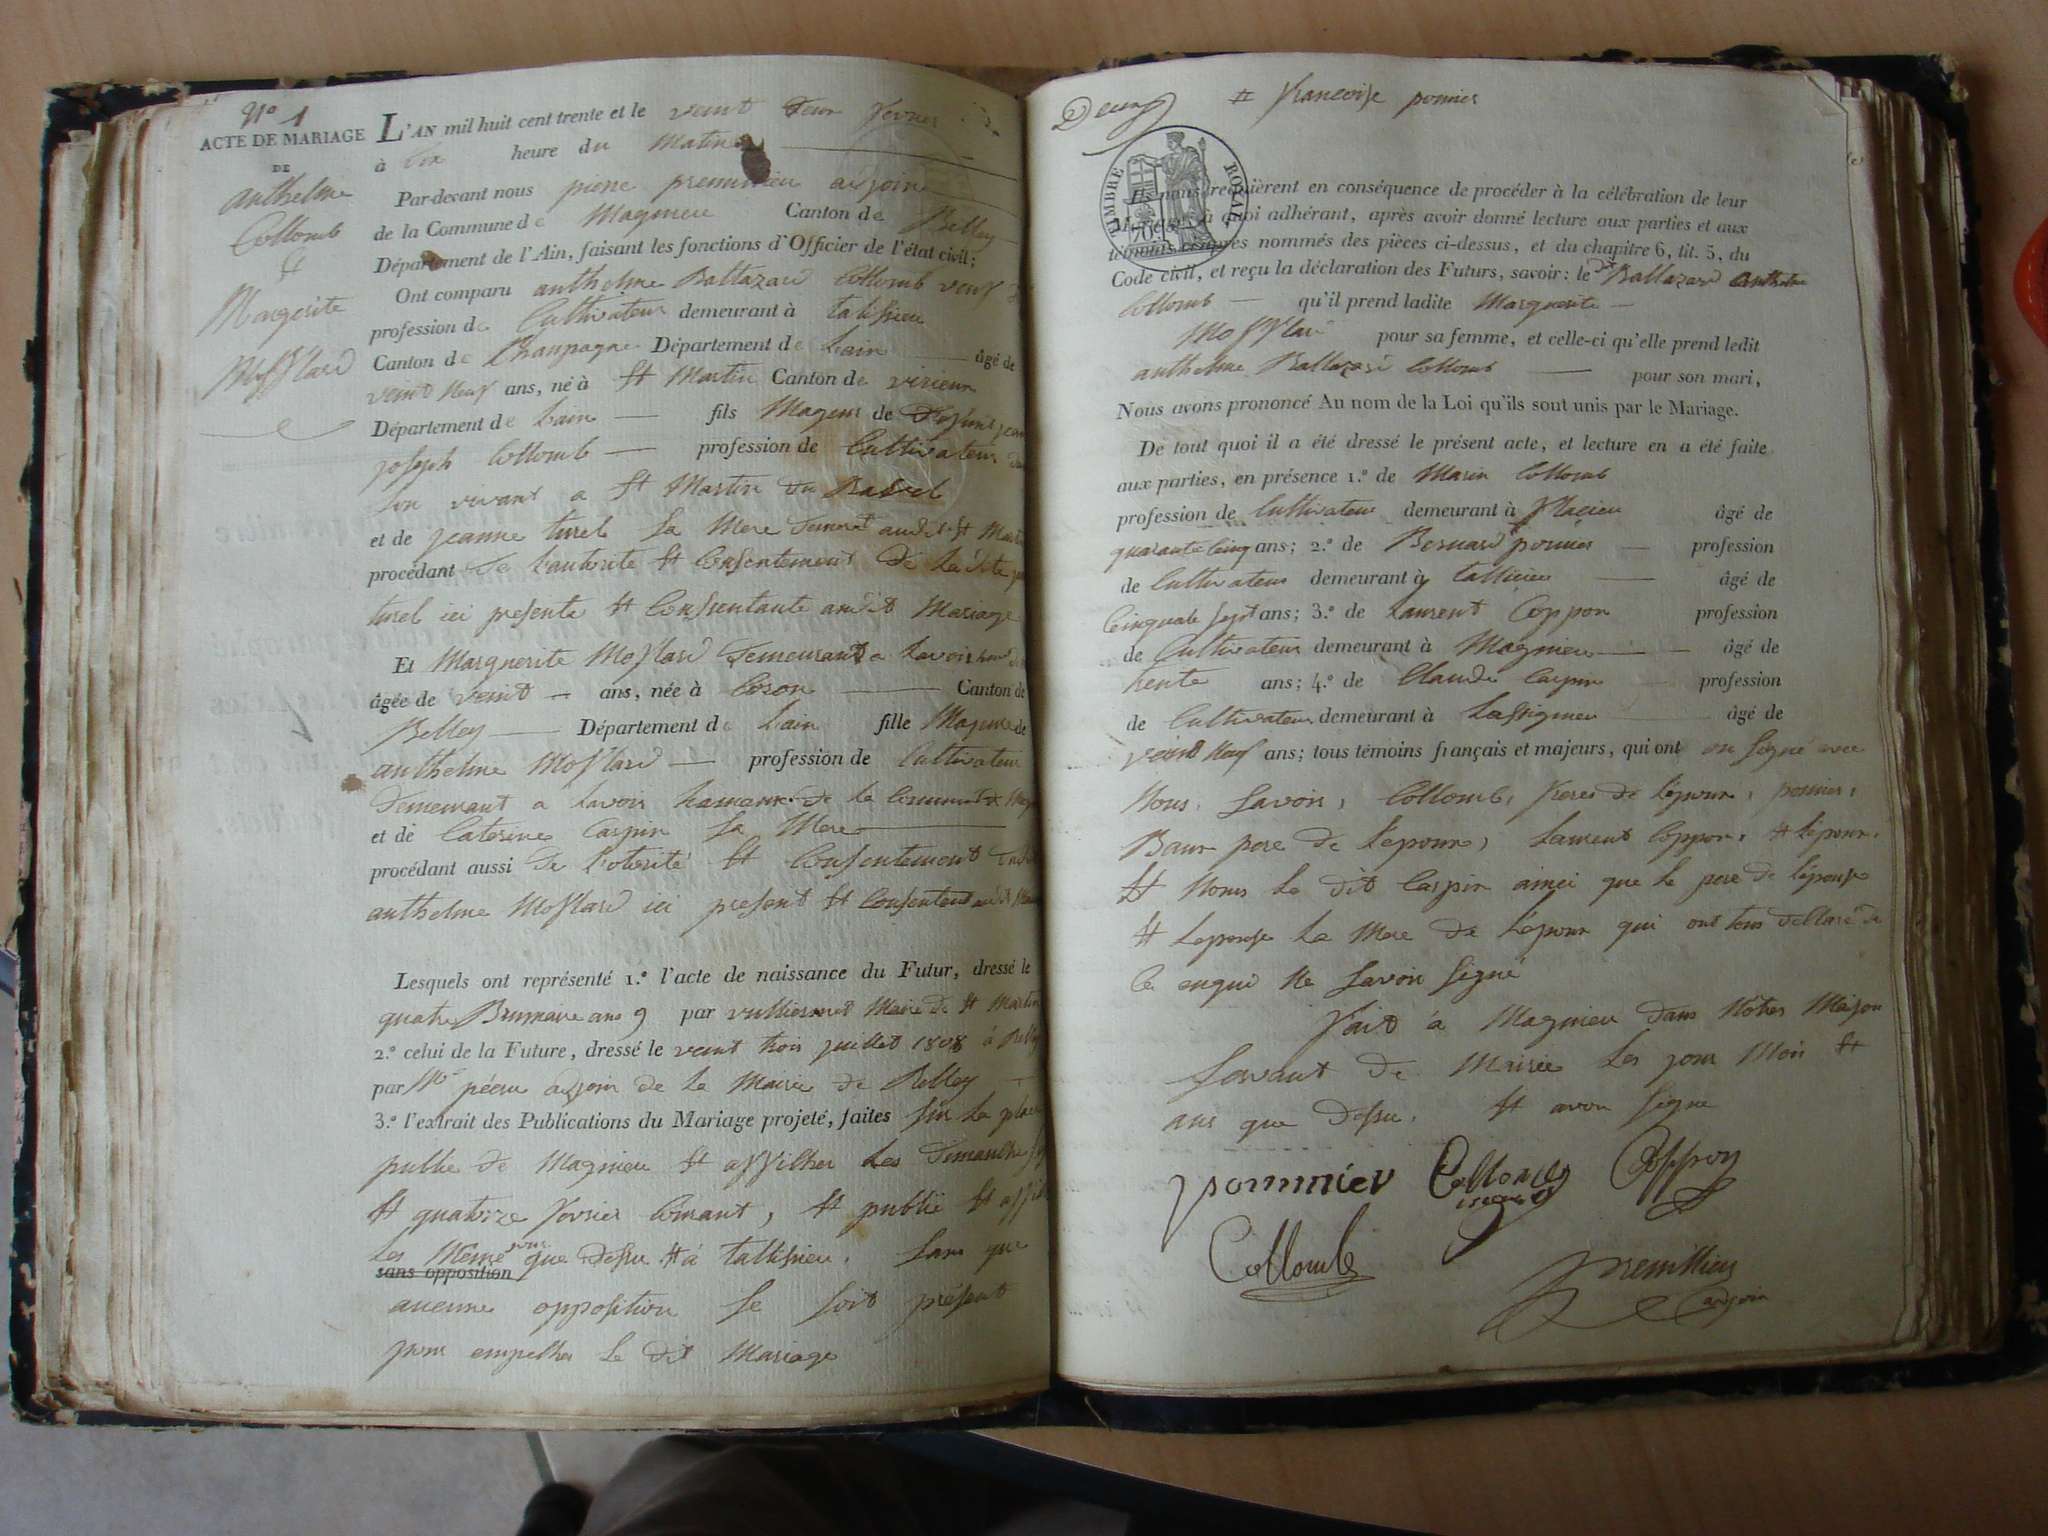 N.o 1
ACTE DE MARIAGE
DE
anthelme
Collomb
et
Margerite
Mofflard
L'AN mil huit cent trente et le veint deux fevrier
à dix heure du Matin
Par-devant nous pierre premillieu adjoin
de la Commune de Magnieu Canton de Belley
Département de l'Ain, faisant les fonctions d'Officier de l'état civil;
Ont comparu anthelme Baltazard Collomb veuf
profession de Cultivateur demeurant à talissieu
Canton de Champagne Département de Lain âgé de
veint neuf ans, né à St Martin Canton de virieu
Département de Lain fils Mageur de deffunt jean
joseph Collomb profession de Cultivateur
son vivant a St Martin du Bavel
et de jeanne turel sa Mere demeurant audit St Martin
procédant de l'autorite et Consentement de Ladite
turel ici presente et Consentante audit Mariage
Et Marguerite Mofflard demeurant a Lavoir
âgée de veint ans, née à Coron Canton de
Belley Département de Lain fille Mageure de
anthelme Mofflard profession de Cultivateur
demeurant a Lavoir hameau de la Commune de
et de Caterine Carpin sa Mere
procédant aussi de l'otorité et Consentement dudit
anthelme Mofflard ici present et Consentent audit
Lesquels ont représenté 1.º l'acte de naissance du Futur, dressé le
quatre Brumaire ans 9 par vulliermet Maire de St Martin
2.º celui de la Future, dressé le veint trois juillet 1808 à Belley
par Mr adjoin de la Mairie de Belley
3.º l'extrait des Publications du Mariage projeté, faites sur la place
public de Magnieu et affilher Les dimanche
et quatorze fevrier Courant, et publié et
Les Même jour que dessu et à tallissieu. Sans que
sans opposition
aucunne opposition se soit présent
pour empelher le dit Mariage
Deux
# francoise pomier
TIMBRE ROYAL
Ils nous requièrent en conséquence de procéder à la célébration de leur
Mariage; à quoi adhérant, après avoir donné lecture aux parties et aux
témoins ci-après nommés des pièces ci-dessus, et du chapitre 6, tit. 5, du
Code civil, et reçu la déclaration des Futurs, savoir: le dt Baltazard anthelme
Collomb qu'il prend ladite Marguerite
Mofflard pour sa femme, et celle-ci qu'elle prend ledit
anthelme Baltazard Collomb pour son mari,
Nous avons prononcé Au nom de la Loi qu'ils sont unis par le Mariage.
De tout quoi il a été dressé le présent acte, et lecture en a été faite
aux parties, en présence 1.º de Marin Collomb
profession de Cultivateur demeurant à âgé de
quarante Cinq ans; 2.º de Bernard pomier profession
de Cultivateur demeurant à tallissieu âgé de
Cinquate sept ans; 3.º de Laurent Coppon profession
de Cultivateur demeurant à Magnieu âgé de
trente ans; 4.º de Claude Carpin profession
de Cultivateur demeurant à Lassignieu âgé de
veint neuf ans; tous témoins français et majeurs, qui ont on signé avec
Nous, Savoir, Collomb, freres de L'epoux, pomier,
Baux pere de L'epoux, Laurent Coppon, et L'epoux.
et Nonts Le dit Carpin ainci que Le pere de L'epouse
et Lepouse La Mere de L'epoux qui ont tous dellaré de
Ce enqui Ne Savoir signé
fait à Magnieu dans Notres Maison
Servant de Mairie Les jour Moi et
ans que dessu. et avon signe
pommier Collomb Coppon
Collomb
premillieu
adjoin